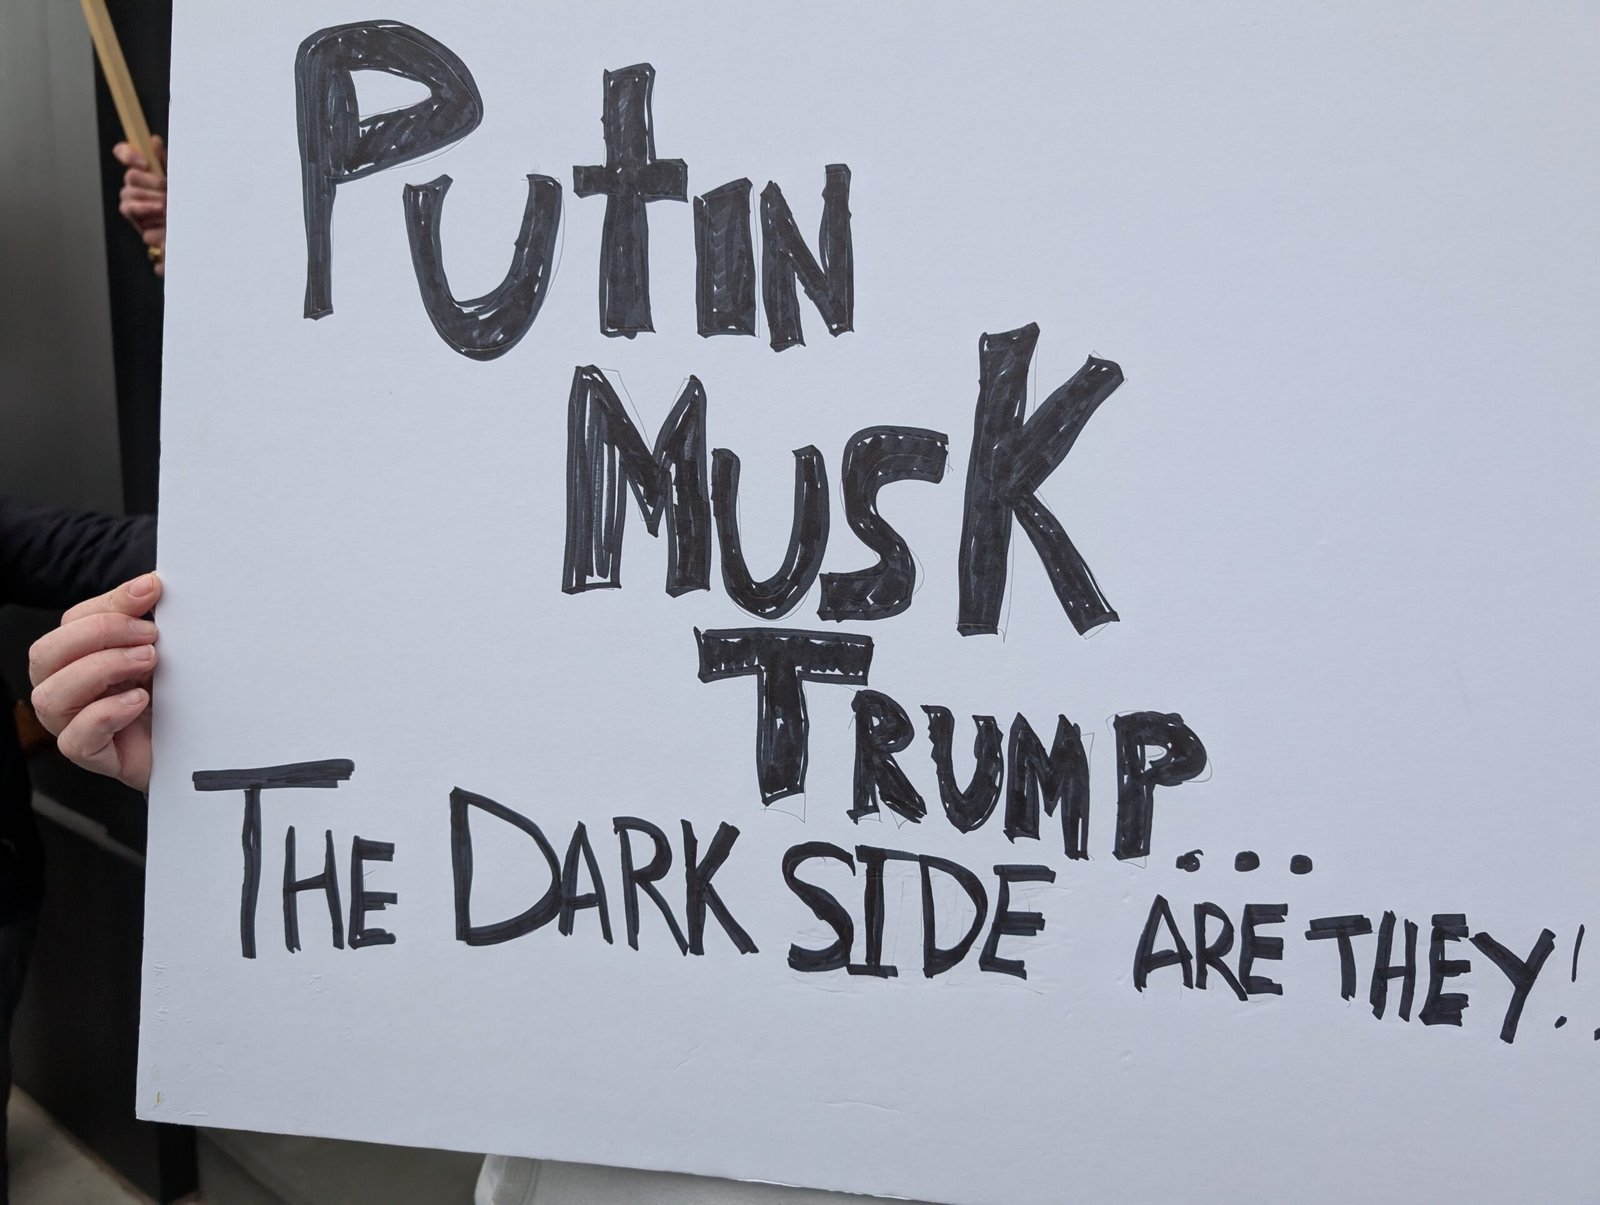 Putin
Musk
Trump...
The Dark Side are they!.